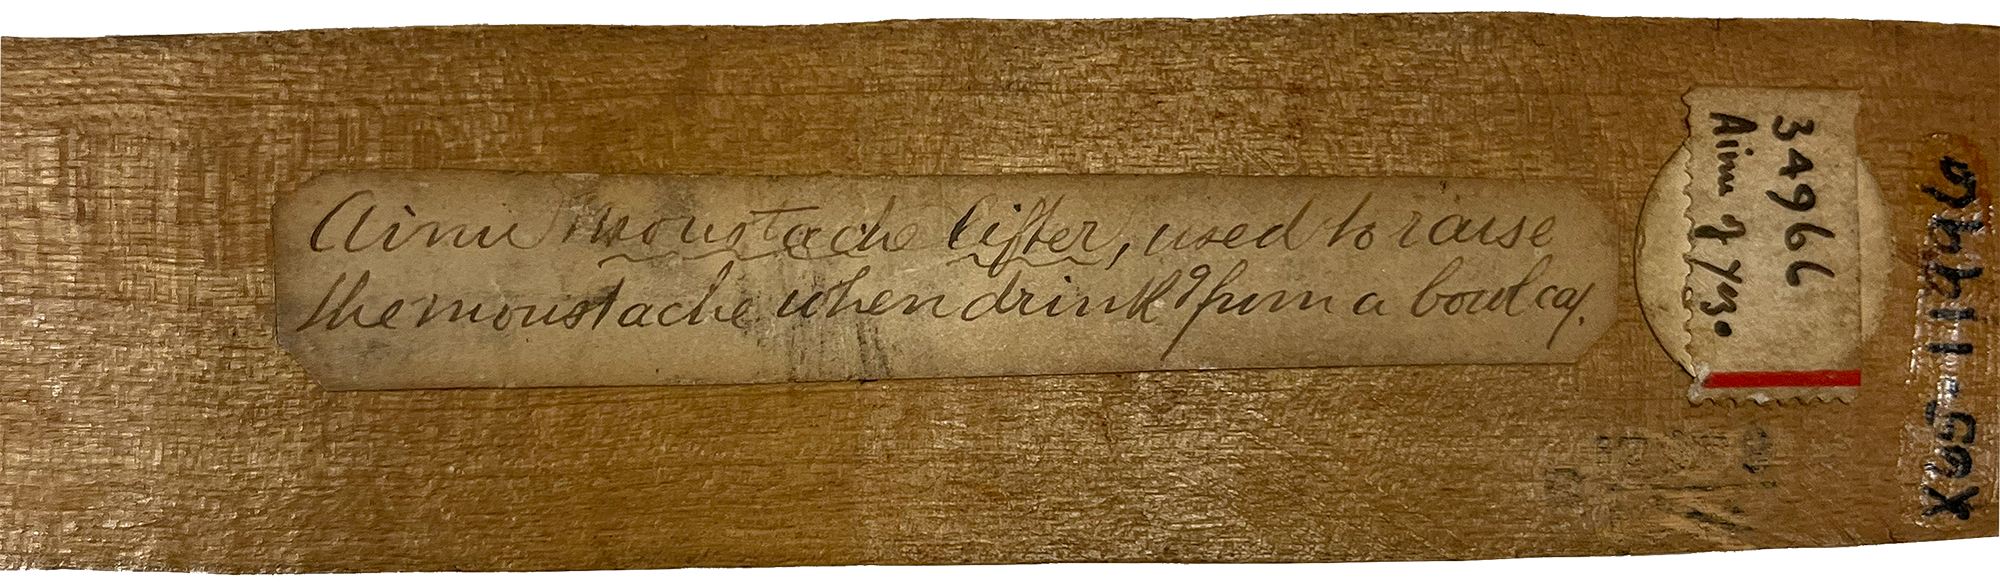 Ainu Moustache lifter, used to raise
the moustache when drinkg from a bowl
34966
Ainu of Yezo